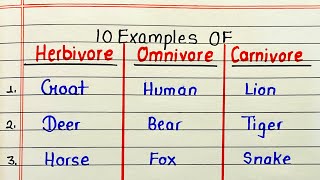 10 Examples OF
Herbivore Omnivore Carnivore
1. Goat Human Lion
2. Deer Bear Tiger
3. Horse Fox Snake